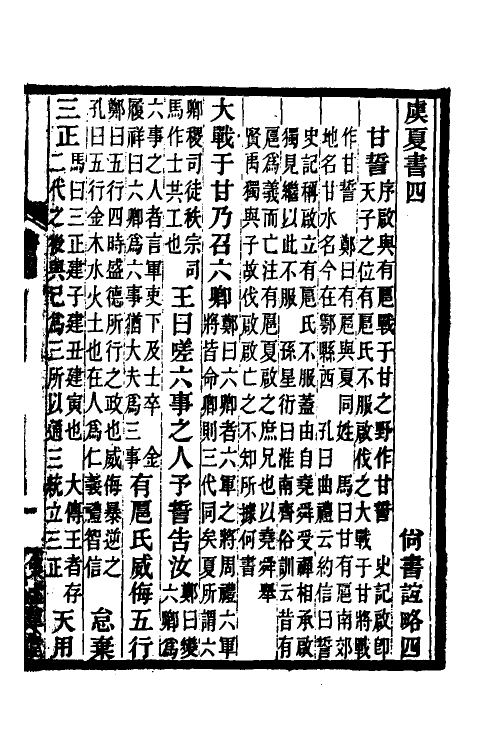 虞夏書四　尚書誼略四
甘誓
序啟與有扈戰于甘之野作甘誓　史記啟卽
天子之位有扈氏不服啟伐之大戰于甘將戰
作甘誓　鄭曰有扈與夏同姓　馬曰甘有扈南郊
地名甘水名今在鄠縣西　孔曰曲禮云約信曰誓
史記稱啟立有扈氏不服蓋由自堯舜受禪相承啟
獨見繼以此不服　孫星衍曰淮南齊俗訓云昔有
扈爲義而亡注有扈夏啟之庶兄也以堯舜舉
賢禹獨與子故伐啟啟亡之不知所據何書
大戰于甘乃召六卿
鄭曰六卿者六軍之將周禮六軍
將皆命卿則三代同矣夏所謂六
卿稷司徒秩宗司
馬作士共工也
王曰嗟六事之人予誓告汝
鄭曰變
六卿爲
六事之人者言軍吏下及士卒　金
履祥曰六卿爲六事猶大夫爲三事
有扈氏威侮五行
鄭曰五行四時盛德所行之政也威侮暴逆之
孔曰五行金木水火土也在人爲仁義禮智信
怠棄
三正
馬曰三正建子建丑建寅也　大傳王者存
二代之後與己爲三所以通三統立三正
天用